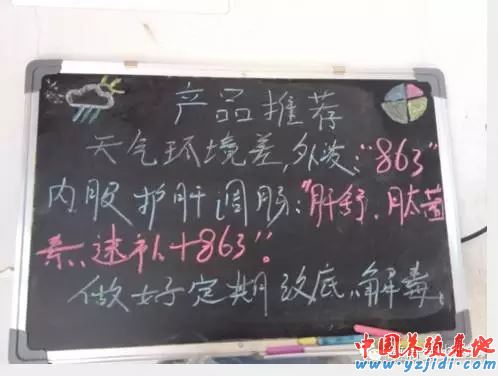 产品推荐
天气环境差,外泼:“863”
内服护肝调肠:“肝舒、肽菌
素、速补+863”。
做好定期改底、解毒。
中国养殖基地
www.yzjidi.com